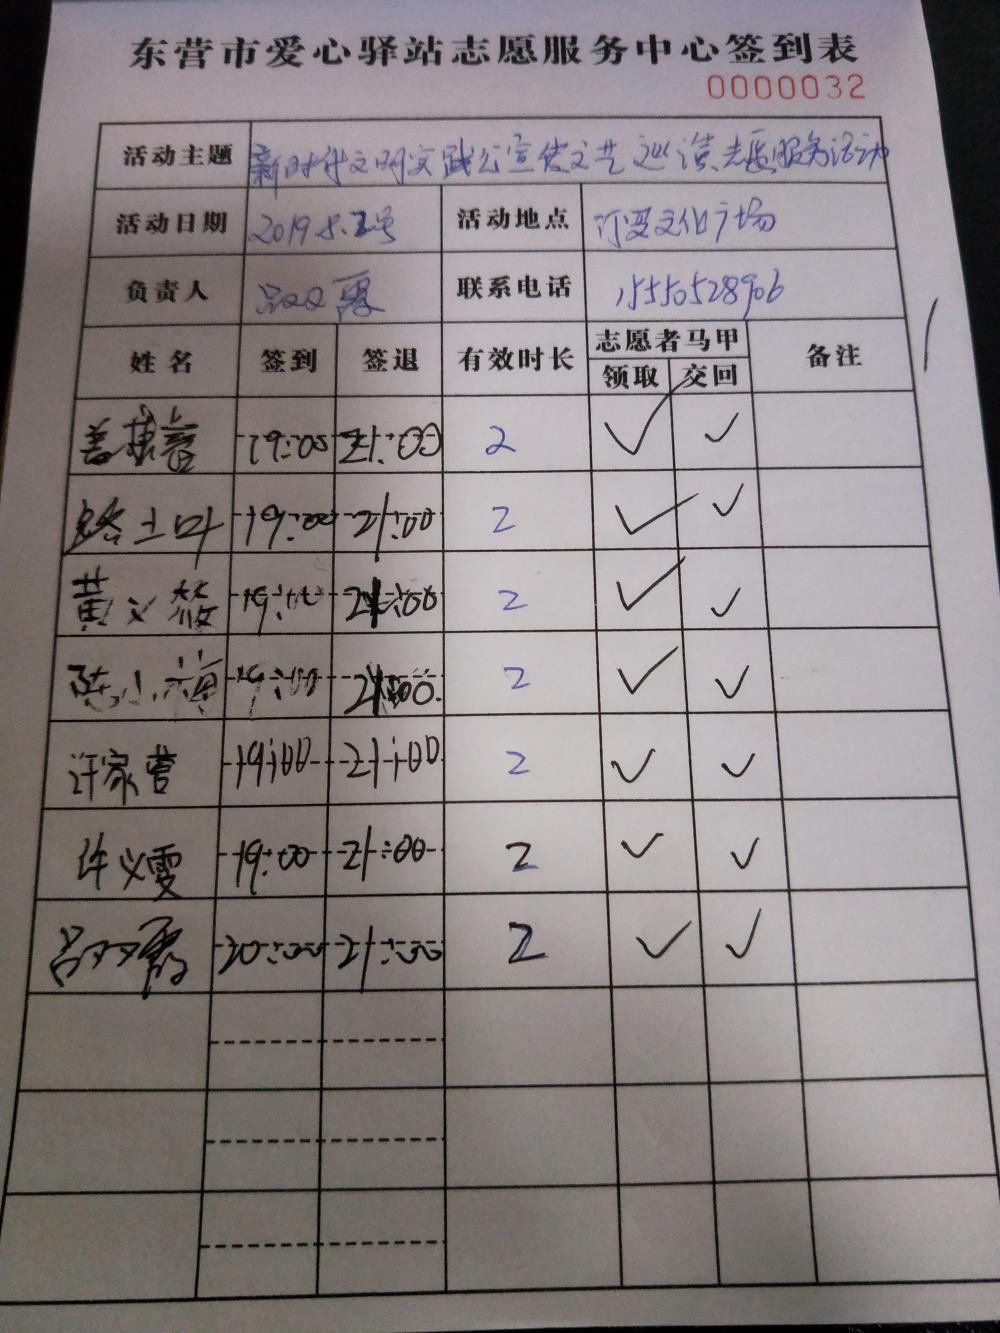 东营市爱心驿站志愿服务中心签到表
0000032
活动主题 新时代文明实践公宣传文艺巡演志愿服务活动
活动日期 2019.8.2号 活动地点 汀罗文化广场
负责人 吕双霞 联系电话 15550528906
姓名 签到 签退 有效时长 志愿者马甲 备注
领取 交回
19:00 21:00 2 ✓ ✓
19:00 21:00 2 ✓ ✓
黄义 19:00 21:00 2 ✓ ✓
陈小梅 19:00 21:00 2 ✓ ✓
许家营 19:00 21:00 2 ✓ ✓
许义雯 19:00 21:00 2 ✓ ✓
吕双霞 20:00 21:00 2 ✓ ✓